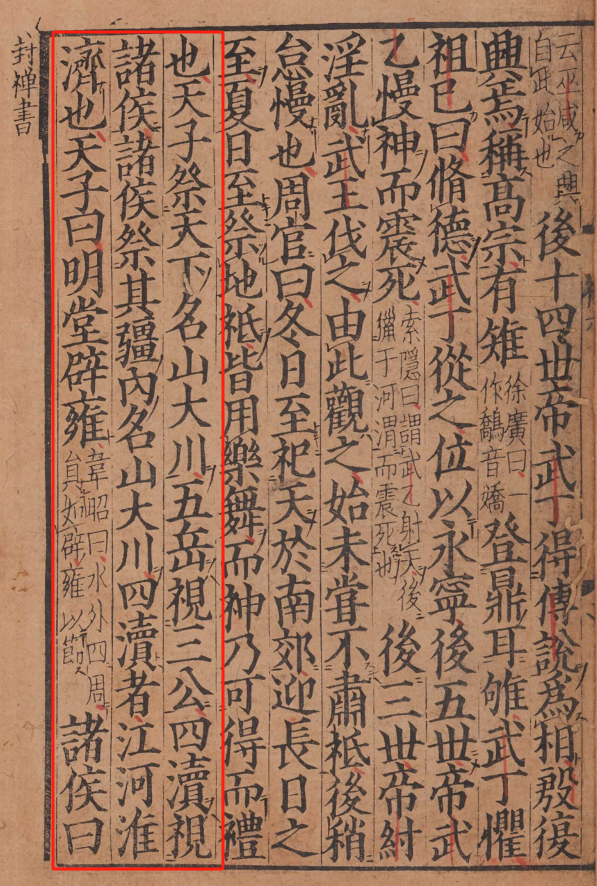 云巫咸之興自此始也後十四世帝武丁得傅說爲相殷復
興焉稱高宗有雉徐廣曰一作鷮音嬌登鼎耳雊武丁懼
祖己曰脩德武丁從之位以永寧後五世帝武
乙慢神而震死索隱曰謂武乙射天後獵于河渭而震死也後三世帝紂
淫亂武王伐之由此觀之始未甞不肅祗後稍
怠慢也周官曰冬日至祀天於南郊迎長日之
至夏日至祭地祗皆用樂舞而神乃可得而禮
也天子祭天下名山大川五岳視三公四瀆視
諸侯諸侯祭其疆內名山大川四瀆者江河淮
濟也天子曰明堂辟雍韋昭曰水外四周員如辟雍以節諸侯曰
封禅書